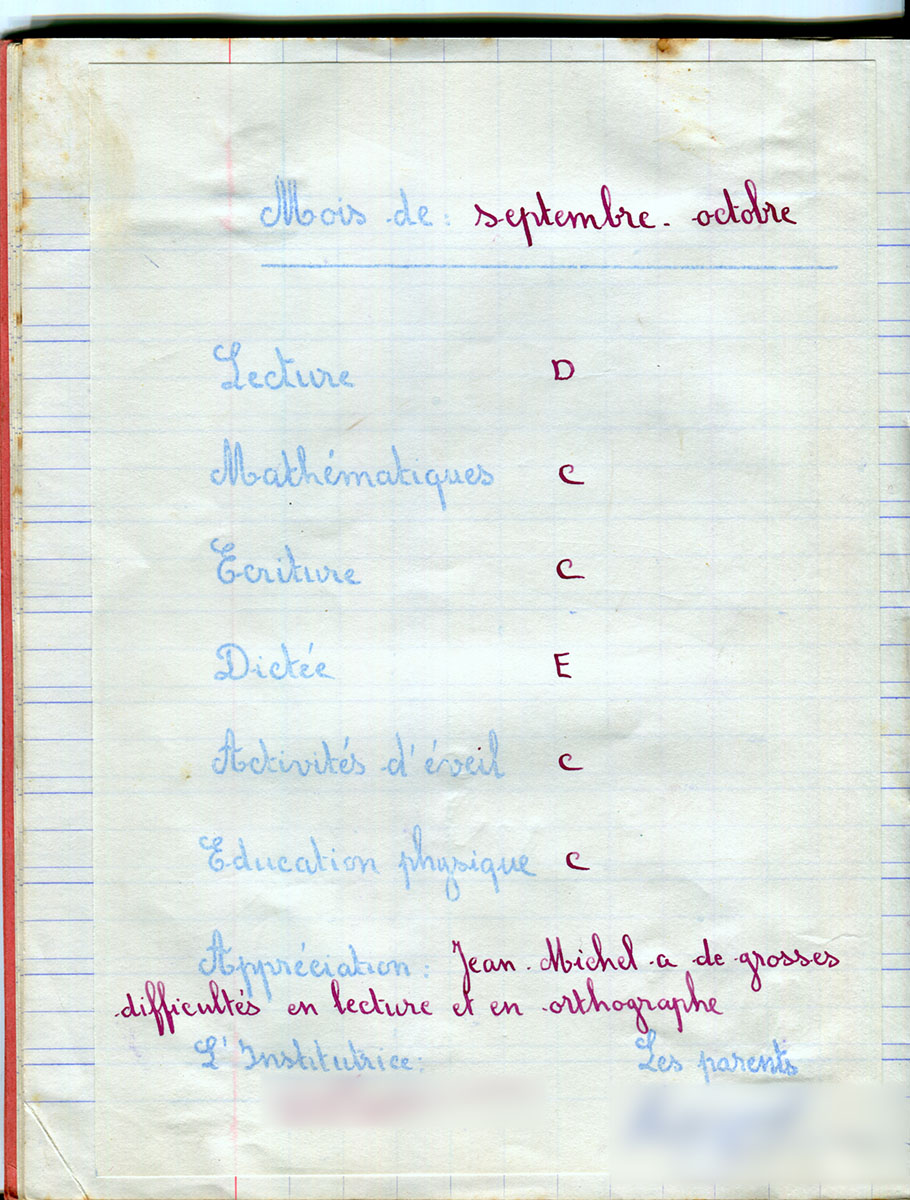 Mois de : septembre - octobre
Lecture D
Mathématiques C
Ecriture C
Dictée E
Activités d'éveil C
Education physique C
Appréciation : Jean-Michel a de grosses
difficultés en lecture et en orthographe
L'Institutrice : Les parents